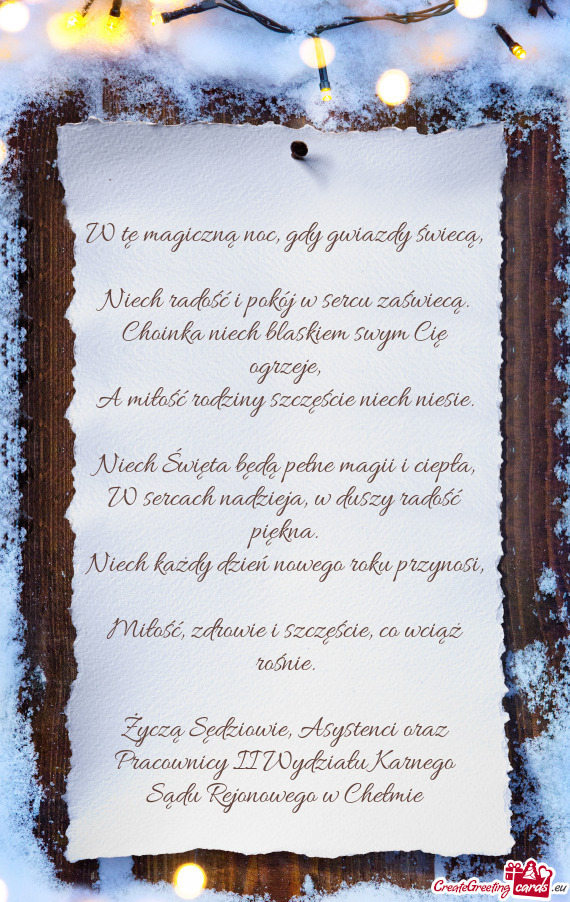 W tę magiczną noc, gdy gwiazdy świecą,
Niech radość i pokój w sercu zaświecą.
Choinka niech blaskiem swym Cię
ogrzeje,
A miłość rodziny szczęście niech niesie.
Niech Święta będą pełne magii i ciepła,
W sercach nadzieja, w duszy radość
piękna.
Niech każdy dzień nowego roku przynosi,
Miłość, zdrowie i szczęście, co wciąż
rośnie.
Życzą Sędziowie, Asystenci oraz
Pracownicy II Wydziału Karnego
Sądu Rejonowego w Chełmie
CreateGreeting cards .eu